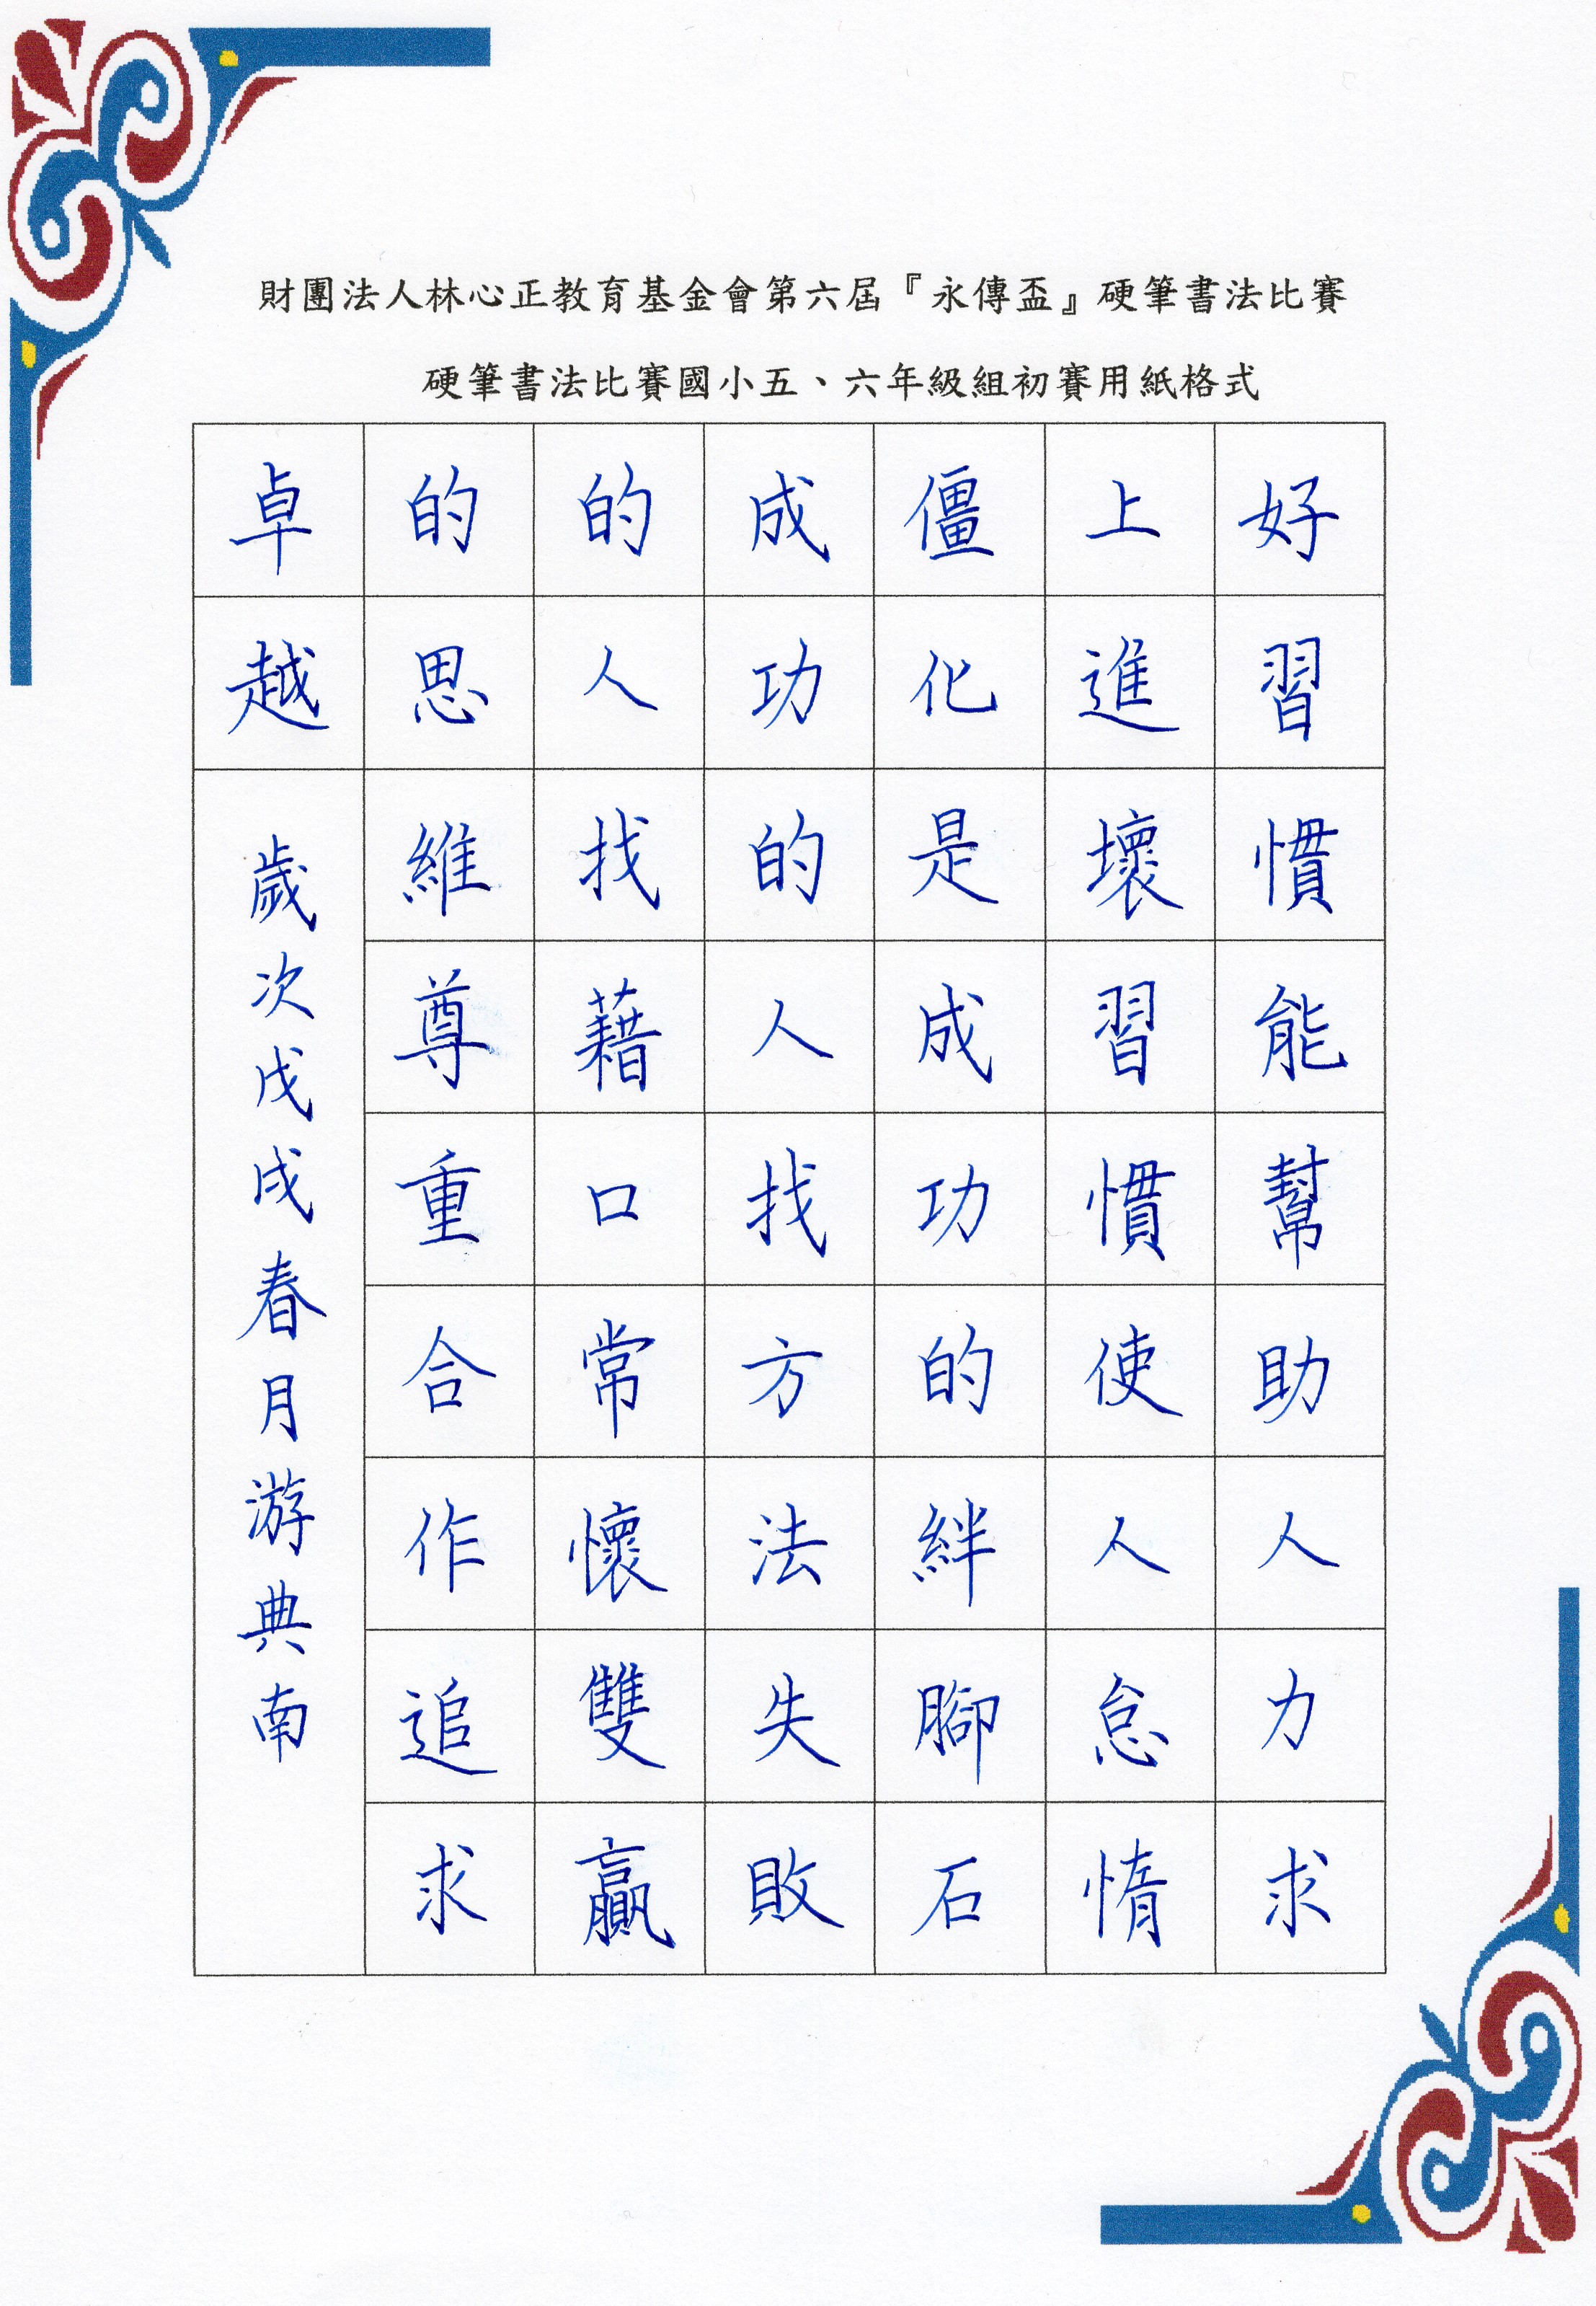 財團法人林心正教育基金會第六屆『永傳盃』硬筆書法比賽
硬筆書法比賽國小五、六年級組初賽用紙格式
好習慣能幫助人力求
上進壞習慣使人怠惰
僵化是成功的絆腳石
成功的人找方法失敗
的人找藉口常懷雙贏
的思維尊重合作追求
卓越
歲次戊戌春月游典南